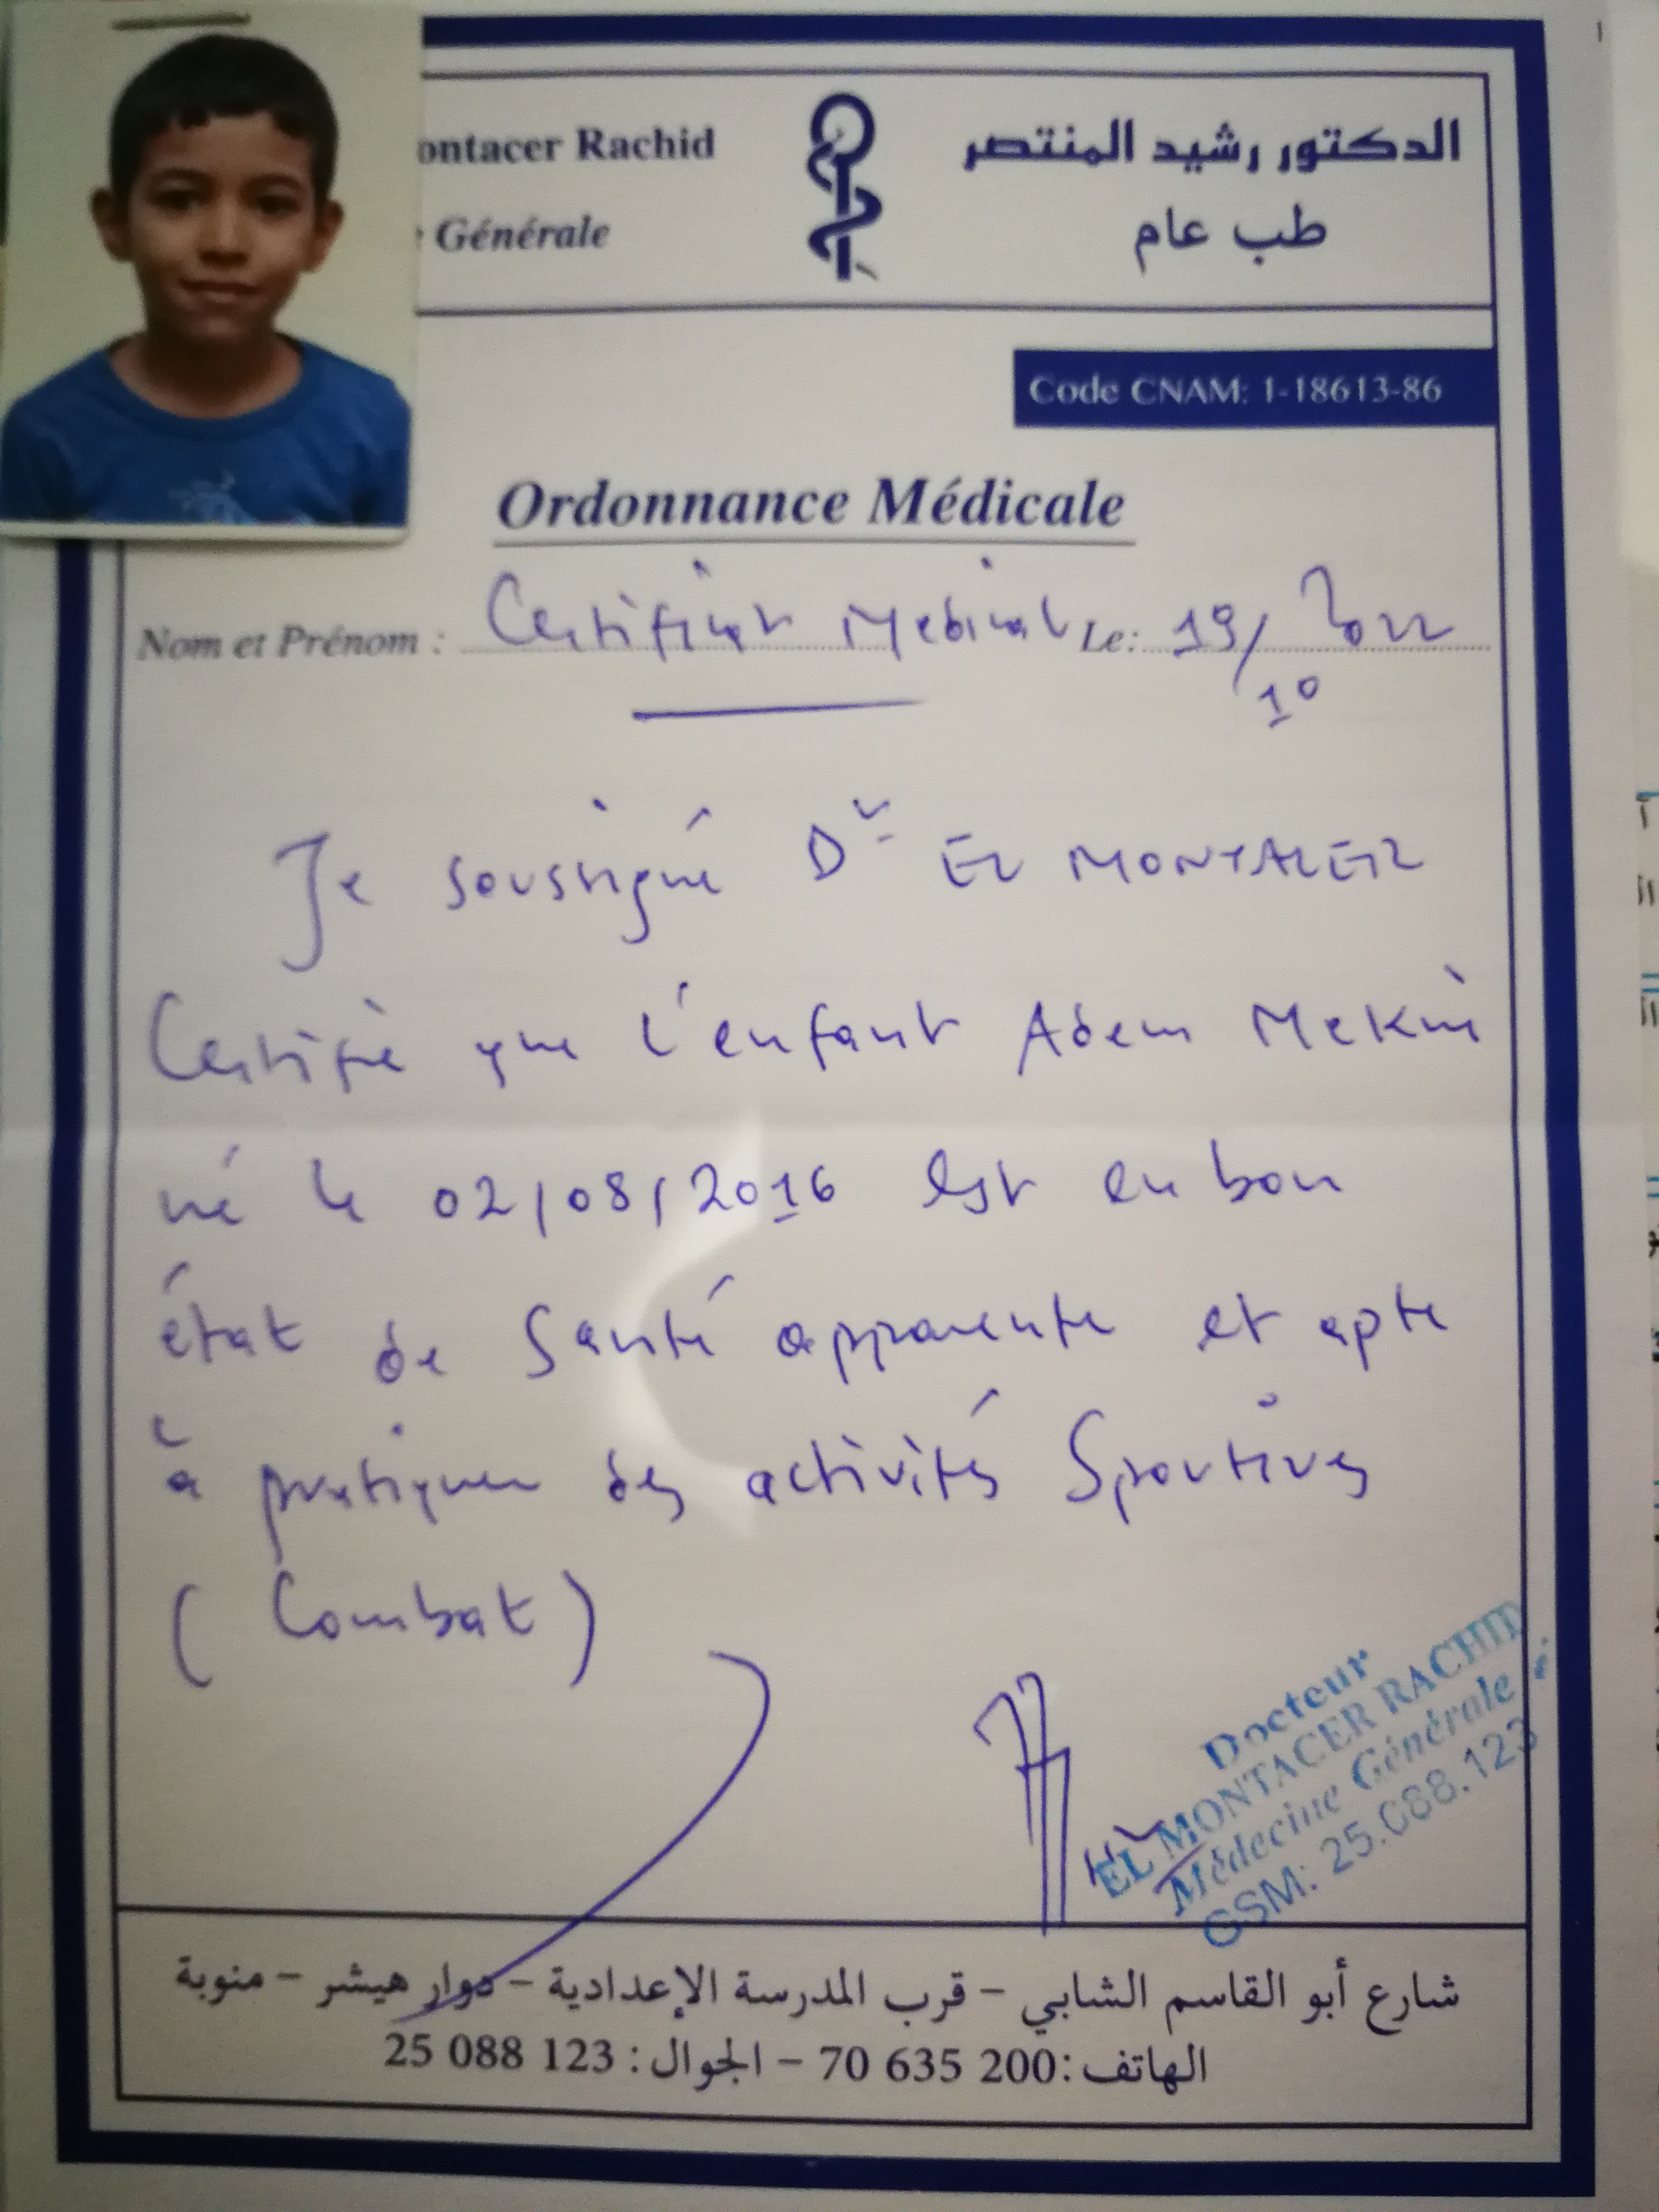 ontacer Rachid
Générale
الدكتور رشيد المنتصر
طب عام
Code CNAM: 1-18613-86
Ordonnance Médicale
Nom et Prénom : Certificat Medical Le: 19/10 2022
Je soussigné Dr EL MONTACER
Certifie que l'enfant Adem Mekni
né le 02/08/2016 est en bon
état de Santé apparente et apte
à pratiquer des activités Sportives
(Combat)
Docteur
EL MONTACER RACHID
Médecine Générale
GSM: 25.088.123
شارع أبو القاسم الشابي - قرب المدرسة الإعدادية - دوار هيشر - منوبة
الهاتف: 70 635 200 - الجوال: 25 088 123